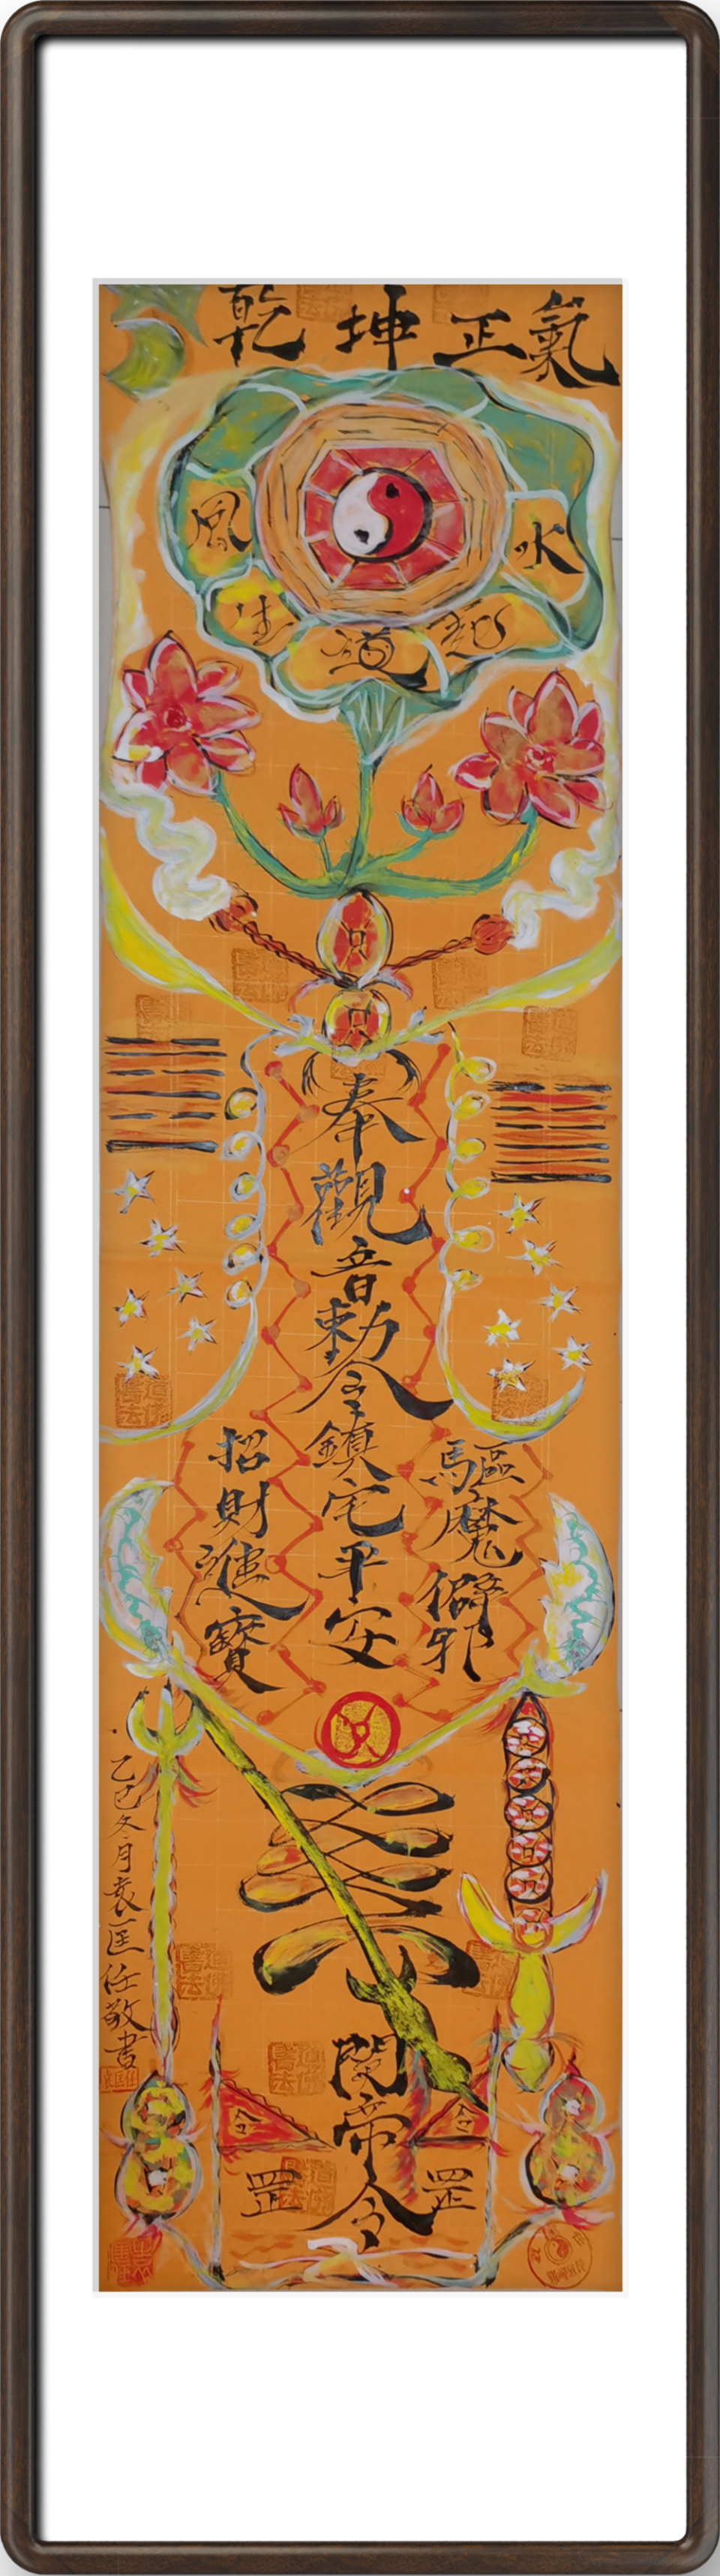 乾坤正氣
風 水
生 道 起
奉觀音勅令鎮宅平安
驅魔僻邪
招財進寶
関帝令
令 令
罡 罡
乙巳冬月袁匡任敬書